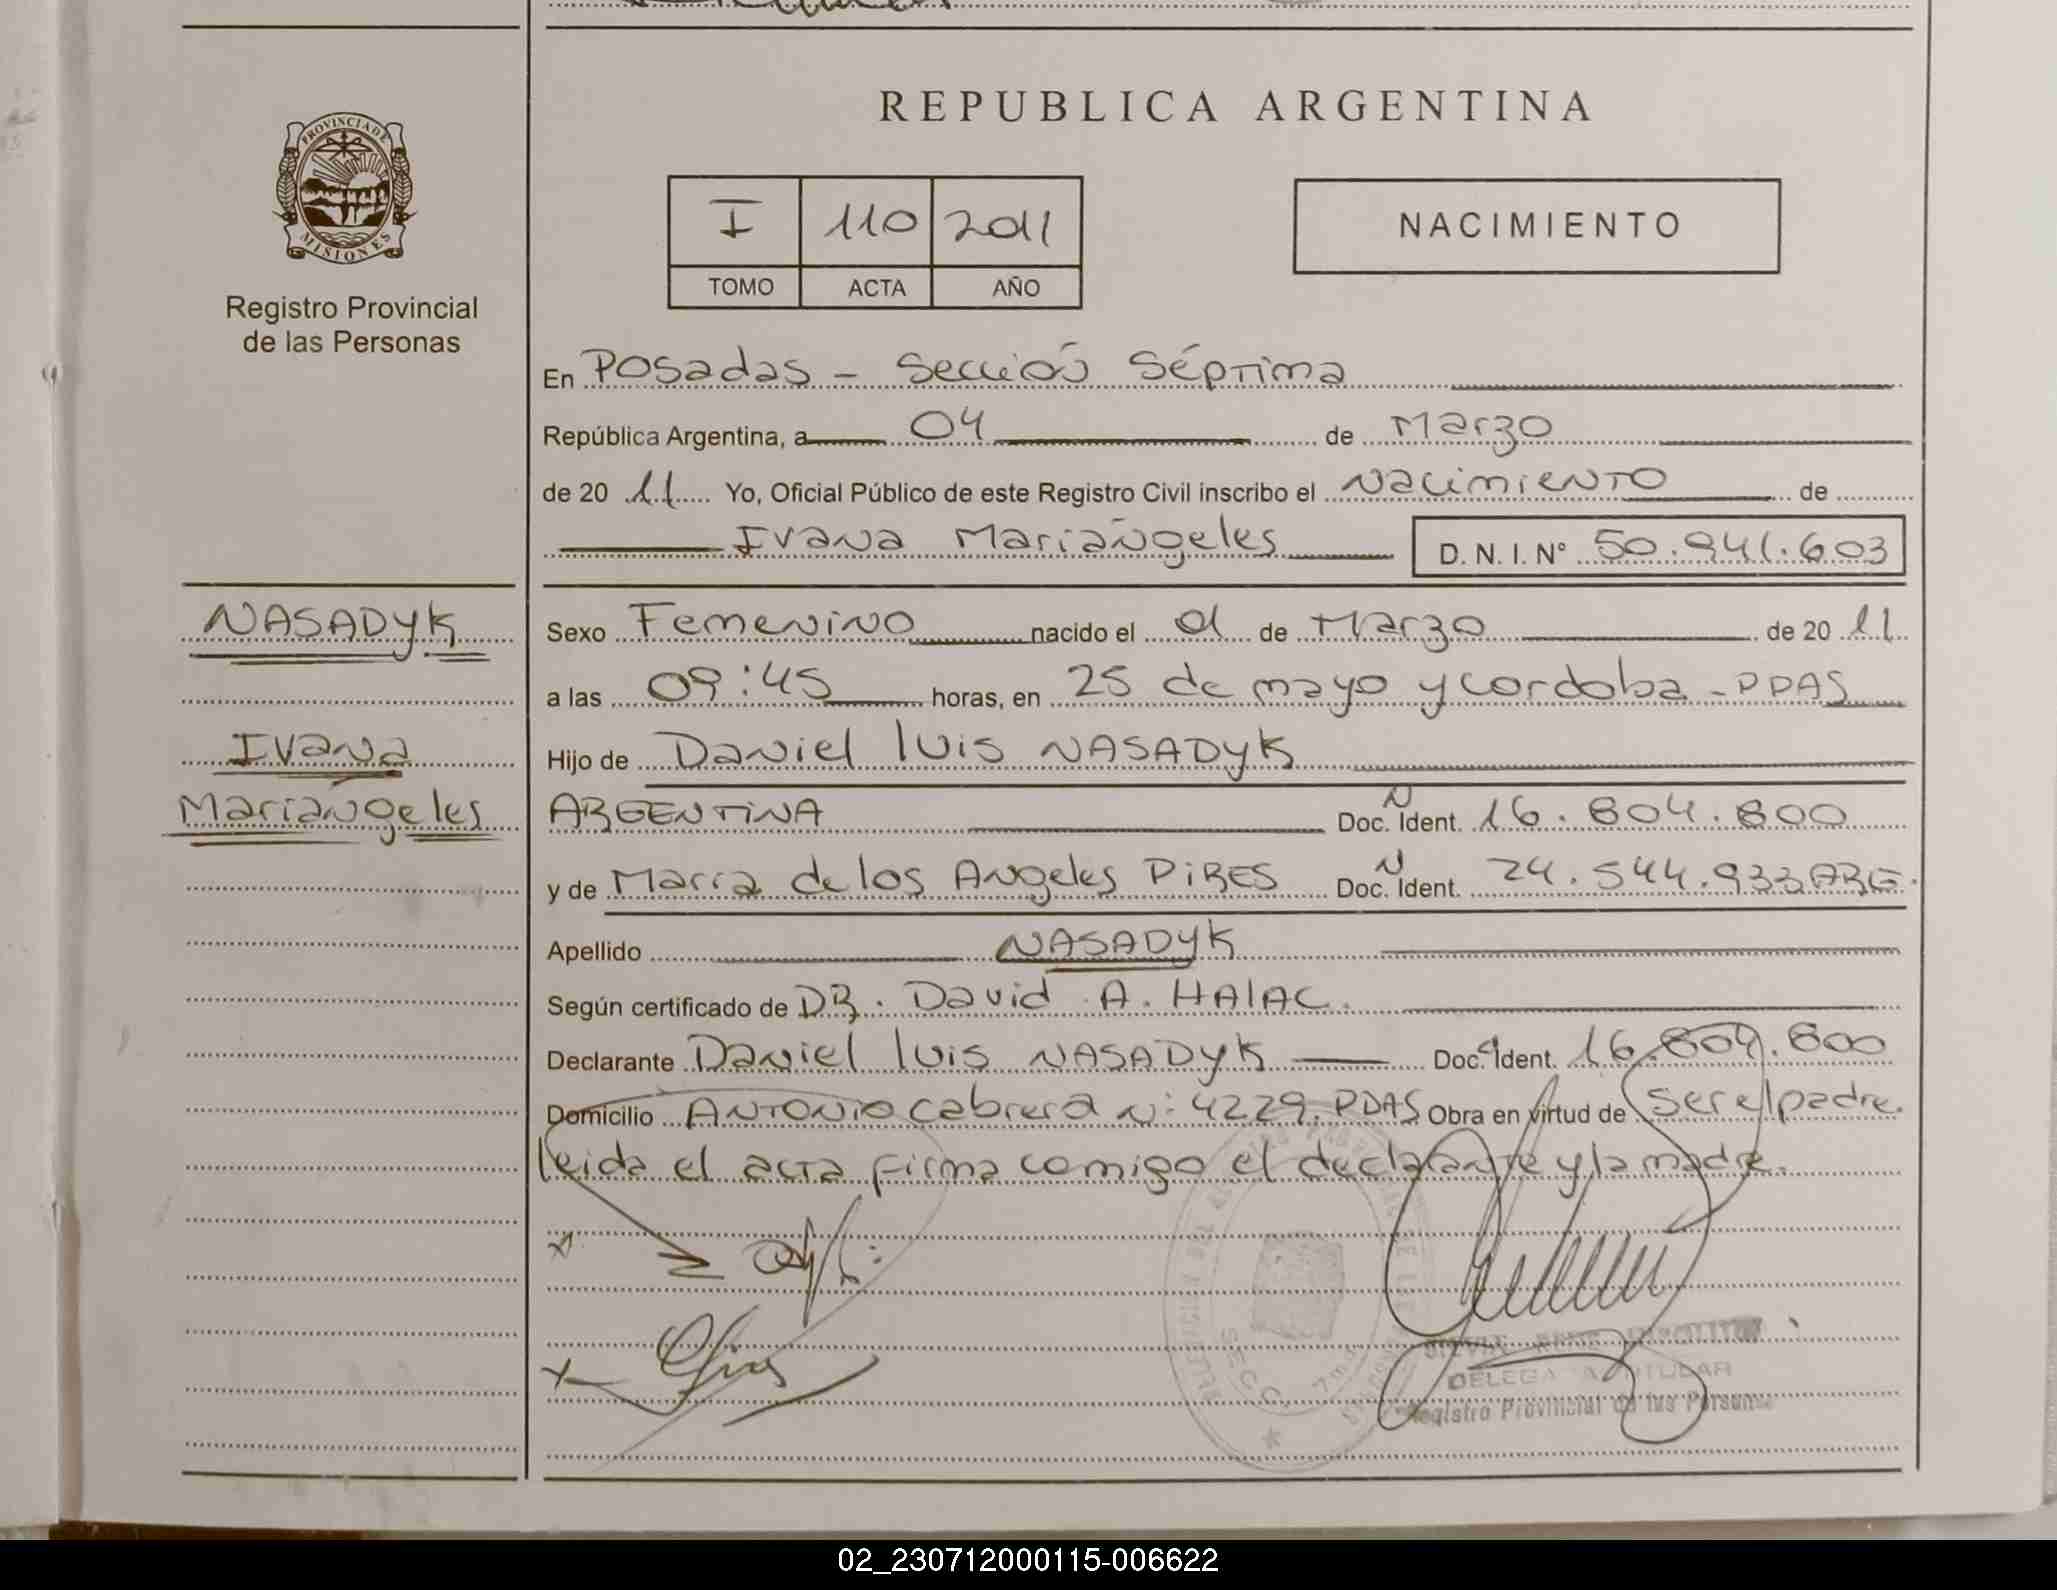 REPUBLICA ARGENTINA
PROVINCIA DE
MISIONES
Registro Provincial
de las Personas
I 110 2011
TOMO ACTA AÑO
NACIMIENTO
En Posadas - Sección Séptima
República Argentina, a 04 de Marzo
de 20 11 Yo, Oficial Público de este Registro Civil inscribo el Nacimiento de
Ivana Mariángeles D. N. I. N° 50.941.603
NASADYK
Ivana
Mariángeles
Sexo Femenino nacido el 01 de Marzo de 20 11
a las 09:45 horas, en 25 de mayo y cordoba - PDAS
Hijo de Daniel luis NASADYK
ARGENTINA Doc. Ident. 16.804.800
y de Maria de los Angeles PIRES Doc. Ident. 24.544.933 ARG.
Apellido NASADYK
Según certificado de DR. David A. HALAC.
Declarante Daniel luis NASADYK Doc. Ident. 16.804.800
Domicilio Antonio Cabrera N: 4229. PDAS Obra en virtud de ser el padre.
leida el acta firma comigo el declarante y la madre.
DELEGADA TITULAR
Registro Provincial de las Personas
02_230712000115-006622